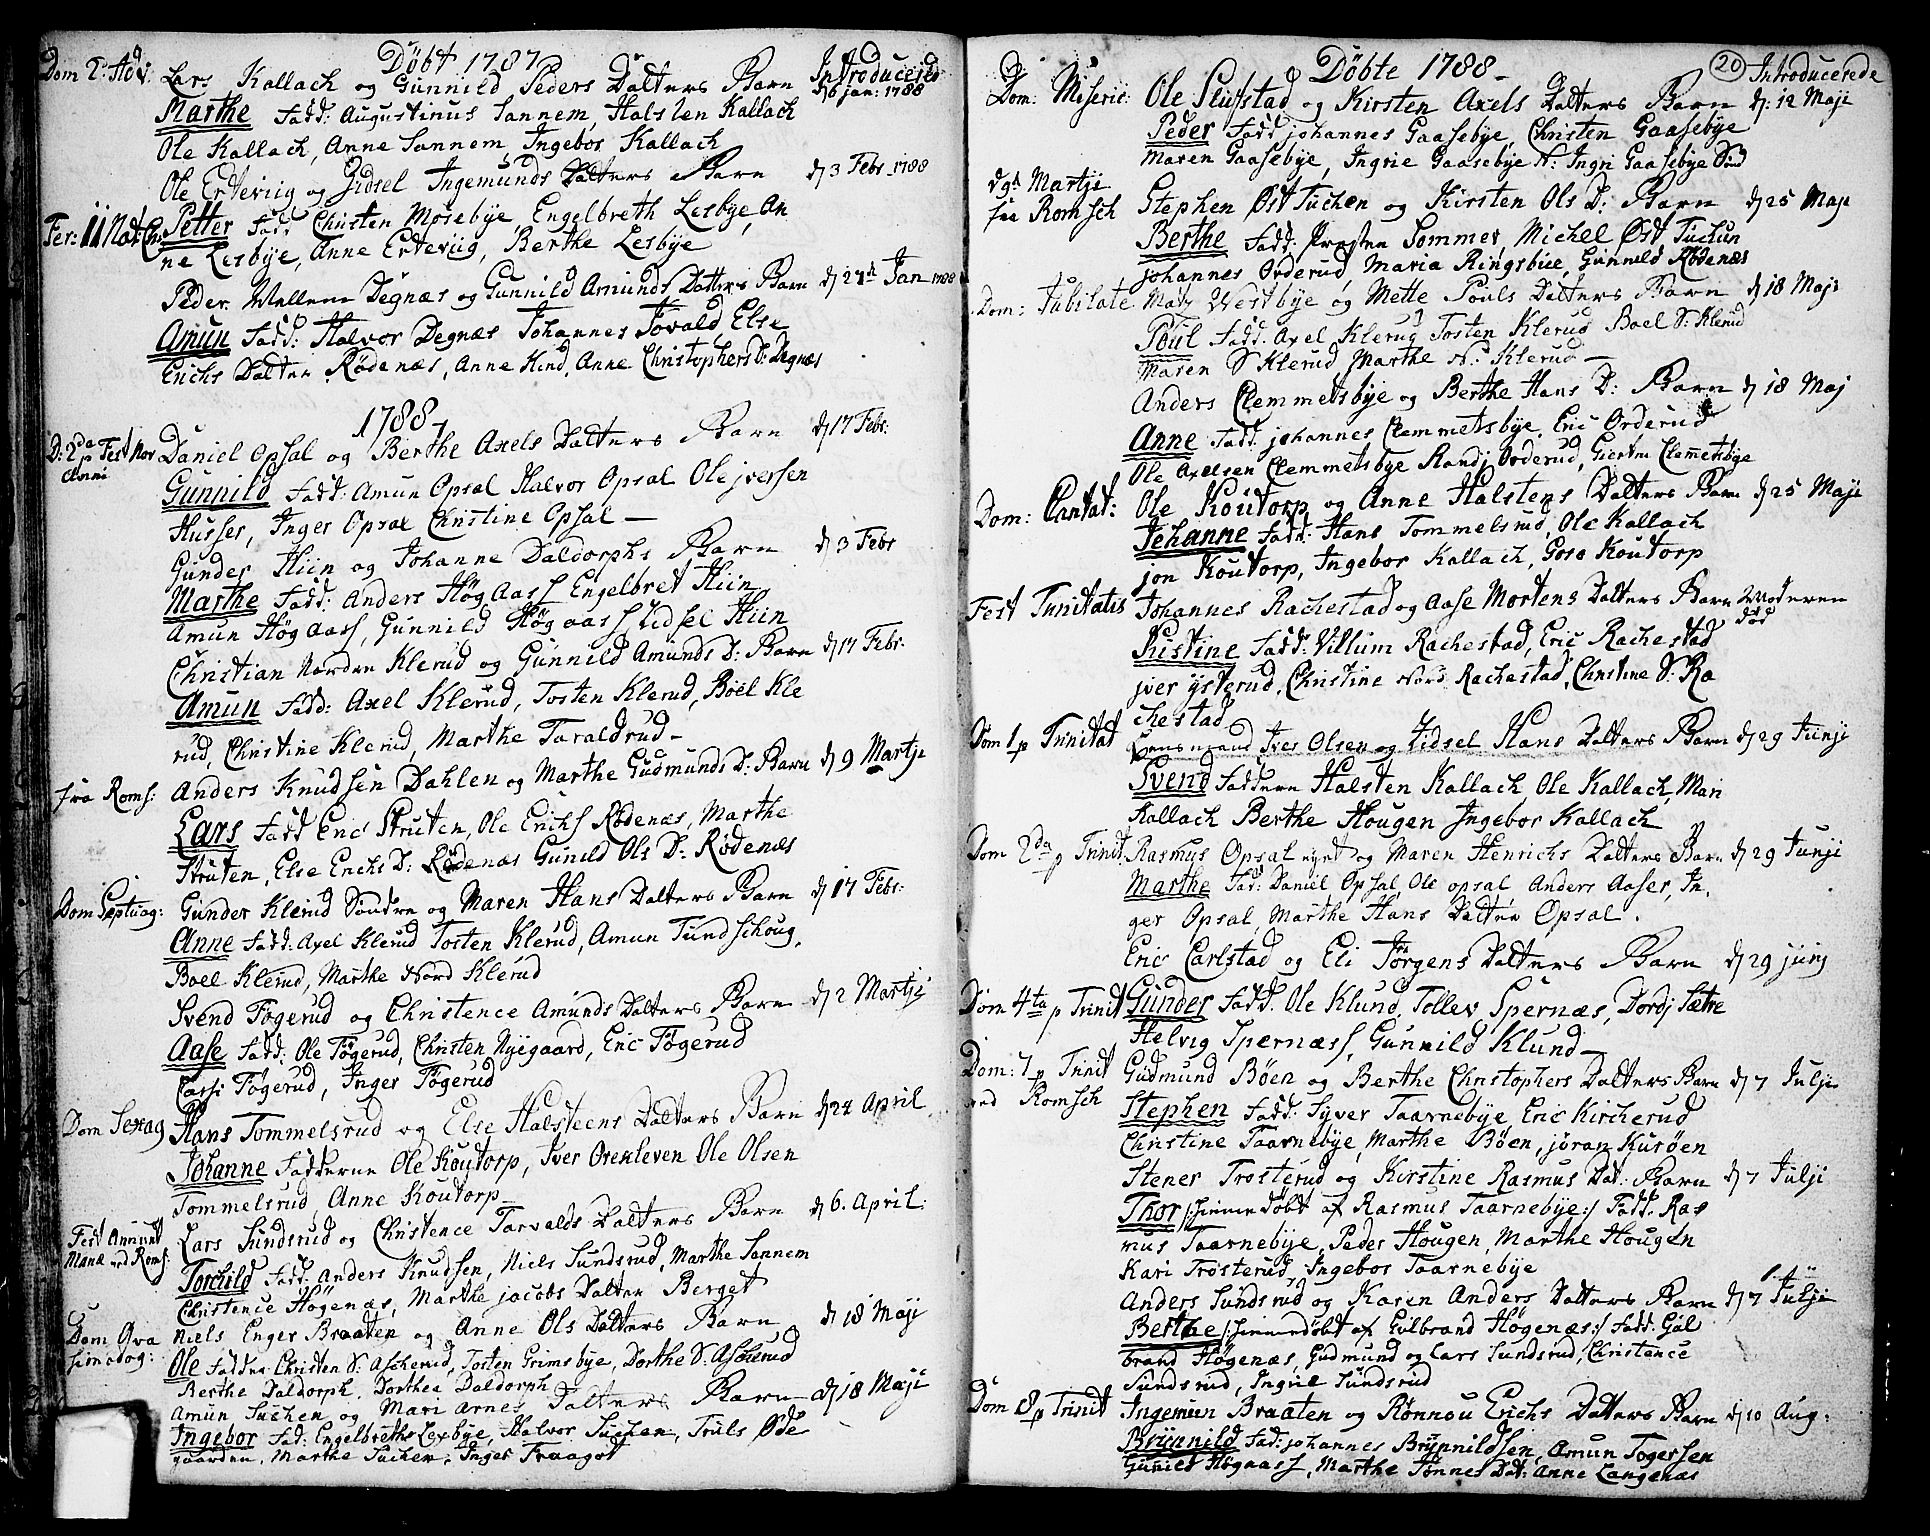 Døbt 1787
Introducered
Dom 2: Adv: Lars Kallach og Gunnild Peders Datters Barn d 6 jan: 1788
Marthe Fadd: Augustinus Sannem, Halsten Kallach
Ole Kallach, Anne Sannem, Ingebor Kallach
Ole Erteviig og Zidsel Ingemunds Datters Barn d 3 Febr 1788
Fer: II Nat: Petter Fadd Christen Mosebye, Engelbreth Lesbye, An
ne Lesbye, Anne Erteviig, Berthe Lesbye
Peder Degnæs og Gunnild Amunds Datters Barn Jan 1788
Amun Fadd: Halvor Degnæs Johannes Else
Erichs Datter Rødenæs, Anne Hind, Anne Christophers D: Degnæs
1788
D: 2da p Fest Nov Anni Daniel Opsal og Berthe Axels Datters Barn d 17 Febr:
Gunnild Fadd: Amun Opsal Halvor Opsal Ole jversen
Husser, Inger Opsal Christine Opsal
Gunder Hiin og Johanne Daldorphs Barn d 3 Febr
Marthe Fadd: Anders Høg Aass Engelbret Hiin
Amun Høg aass, Gunnild Høg aass Zidsel Hiin
Christian Nordre Klerud og Gunnild Amunds D: Barn d 17 Febr:
Amun Fadd: Axel Klerud, Tosten Klerud, Boel Kle
rud, Christine Klerud, Marthe Taraldrud
fra Roms: Anders Knudsen Dahlen og Marthe Gudmunds D: Barn d 9 Martji
Lars Fadd Eric Struten, Ole Erichs Rødenæs, Marthe
Struten, Else Erichs D: Rødenæs Gunild Ols D: Rødenæs
Dom Septuag: Gunder Klerud Søndre og Maren Hans Datters Barn d 17 Febr:
Anne Fadd: Axel Klerud Tosten Klerud, Amun Tundschoug,
Boel Klerud, Marthe Nord Klerud
Svend Føgerud og Christence Amunds Datters Barn d 2 Martji
Aase Fadd: Ole Føgerud, Christen Nyigaard, Eric Føgerud
Føgerud, Inger Føgerud
Dom Sexag Hans Tommelsrud og Else Halsteens Datters Barn d 24 April
Johanne Fadderne Ole Koutorp, Iver Orekleven Ole Olsen
Tommelsrud, Anne Koutorp
Fest Annunt Lars Sundsrud og Christence Tarvalds Datters Barn d 6. April:
Mariæ ved Roms: Torchild Fadd: Anders Knudsen, Niels Sundsrud, Marthe Sannem
Christence Høgenæs, Marthe jacobs Datter Berget
Dom Qva Niels Enger Braaten og Anne Ols Datters Barn d 18 Maji
simodog: Ole Faddre Christen S: Ascherud, Tosten Grimsbye, Dorthe S: Ascherud
Berthe Daldorph, Dorthea Daldorph
Amun Tuchen og Mari Arnes Datters Barn d 18 Maji
Ingebor Fad: Engelbreth Lexbye, Halvor Tuchen, Truls Øde
gaarden, Marthe Tuchen, Inger Fraagot
Døbte 1788
20 Introducerede
Dom: Miseric: Ole Slufstad og Kirsten Axels Datters Barn d: 12 Maji
Peder Fadd johannes Gaasebye, Christen Gaasebye
Maren Gaasebye, Ingrie Gaasebye N: Ingri Gaasebye Sind
Martji Stephen Øst Tuchen og Kirsten Ols D: Barn d 25 Maji
fra Romsch Berthe Fadd: Præsten Sommer, Michel Øst Tuchun
johannes Orderud, Maria Ringsbue, Gunnild Rødenæs
Dom: Jubilate Matz Westbye og Mette Pouls Datters Barn d 18 Maji
Poul Fadd. Axel Klerud Tosten Klerud Boel S: Klerud
Maren S Klerud, Marthe N: Klerud
Anders Clemmetsbye og Berthe Hans D: Barn d 18 Maj
Anne Fadd. johannes Clemmetsbye, Eric Orderud
Ole Axelsen Clemmetsbye Randj Orderud, Giertru Clemmetsbye
Dom: Cantat: Ole Koutorp og Anne Halstens Datters Barn d 25 Maji
Johanne Fadd: Hans Tommelsrud, Ole Kallach
jon Koutorp, Ingebor Kallach, Goro Koutorp
Fest Trinitatis Johannes Rachestad og Aase Mortens Datters Barn Moderen død
Kistine Fadd: Villum Rachestad, Eric Rachestad
jver ysterud, Christine Nord Rachestad, Christine S: Ra
chestad
Dom 1 p Trinitat Lensmand Iver Olsen og Zidsel Hans Datters Barn d 29 Junji
Svend Faddere Halsten Kallach, Ole Kallach, Mari
Kallach Berthe Hougen Ingebor Kallach
Dom 2da p Trinit. Rasmus Opsal eyet og Maren Henrichs Datters Barn d 29 Junji
Marthe Fad: Daniel Opsal Ole opsal Anders Aaser, In
ger Opsal, Marthe Hans Datter Opsal.
Eric Carlstad og Eli Jørgens Datters Barn d 29 junj
Dom 4ta p Trinit Gunder Fadd. Ole Klund, Tollev Spernæs, Dordj Sætre
Helvig Spernæss, Gunnild Klund
Dom: 7 p Trinit Gudmund Bøen og Berthe Christophers Datters Barn d 7 Julji
ved Romsch Stephen Fadd: Syver Taarnebye, Eric Kircherud
Christine Taarnebye, Marthe Bøen, jøran Kurøen
Stener Trosterud og Kirstine Rasmus Dat: Barn d 7 Julji
Thor /:hiemme døbt af Rasmus Taarnebye:/ Fadd. Ras
mus Taarnebye, Peder Hougen, Marthe Hougen
Kari Trosterud, Ingebor Taarnebye
Anders Sundsrud og Karen Anders Datters Barn d 7 Julji
Berthe /:hiemmedøbt af Gulbrand Høgenæs:/ Fadd: Gul
brand Høgenæs, Gudmund og Lars Sundsrud, Christence
Sundsrud, Ingrie Sundsrud
Dom 8 p Trinit Ingemun Braaten og Rønnou Erichs Datters Barn d 10 Aug:
Brynnild Fad: johannes Brynnildsen, Amun Togersen
Gunild Høgaass, Marthe Tønnes Dat: Anne Langenæs